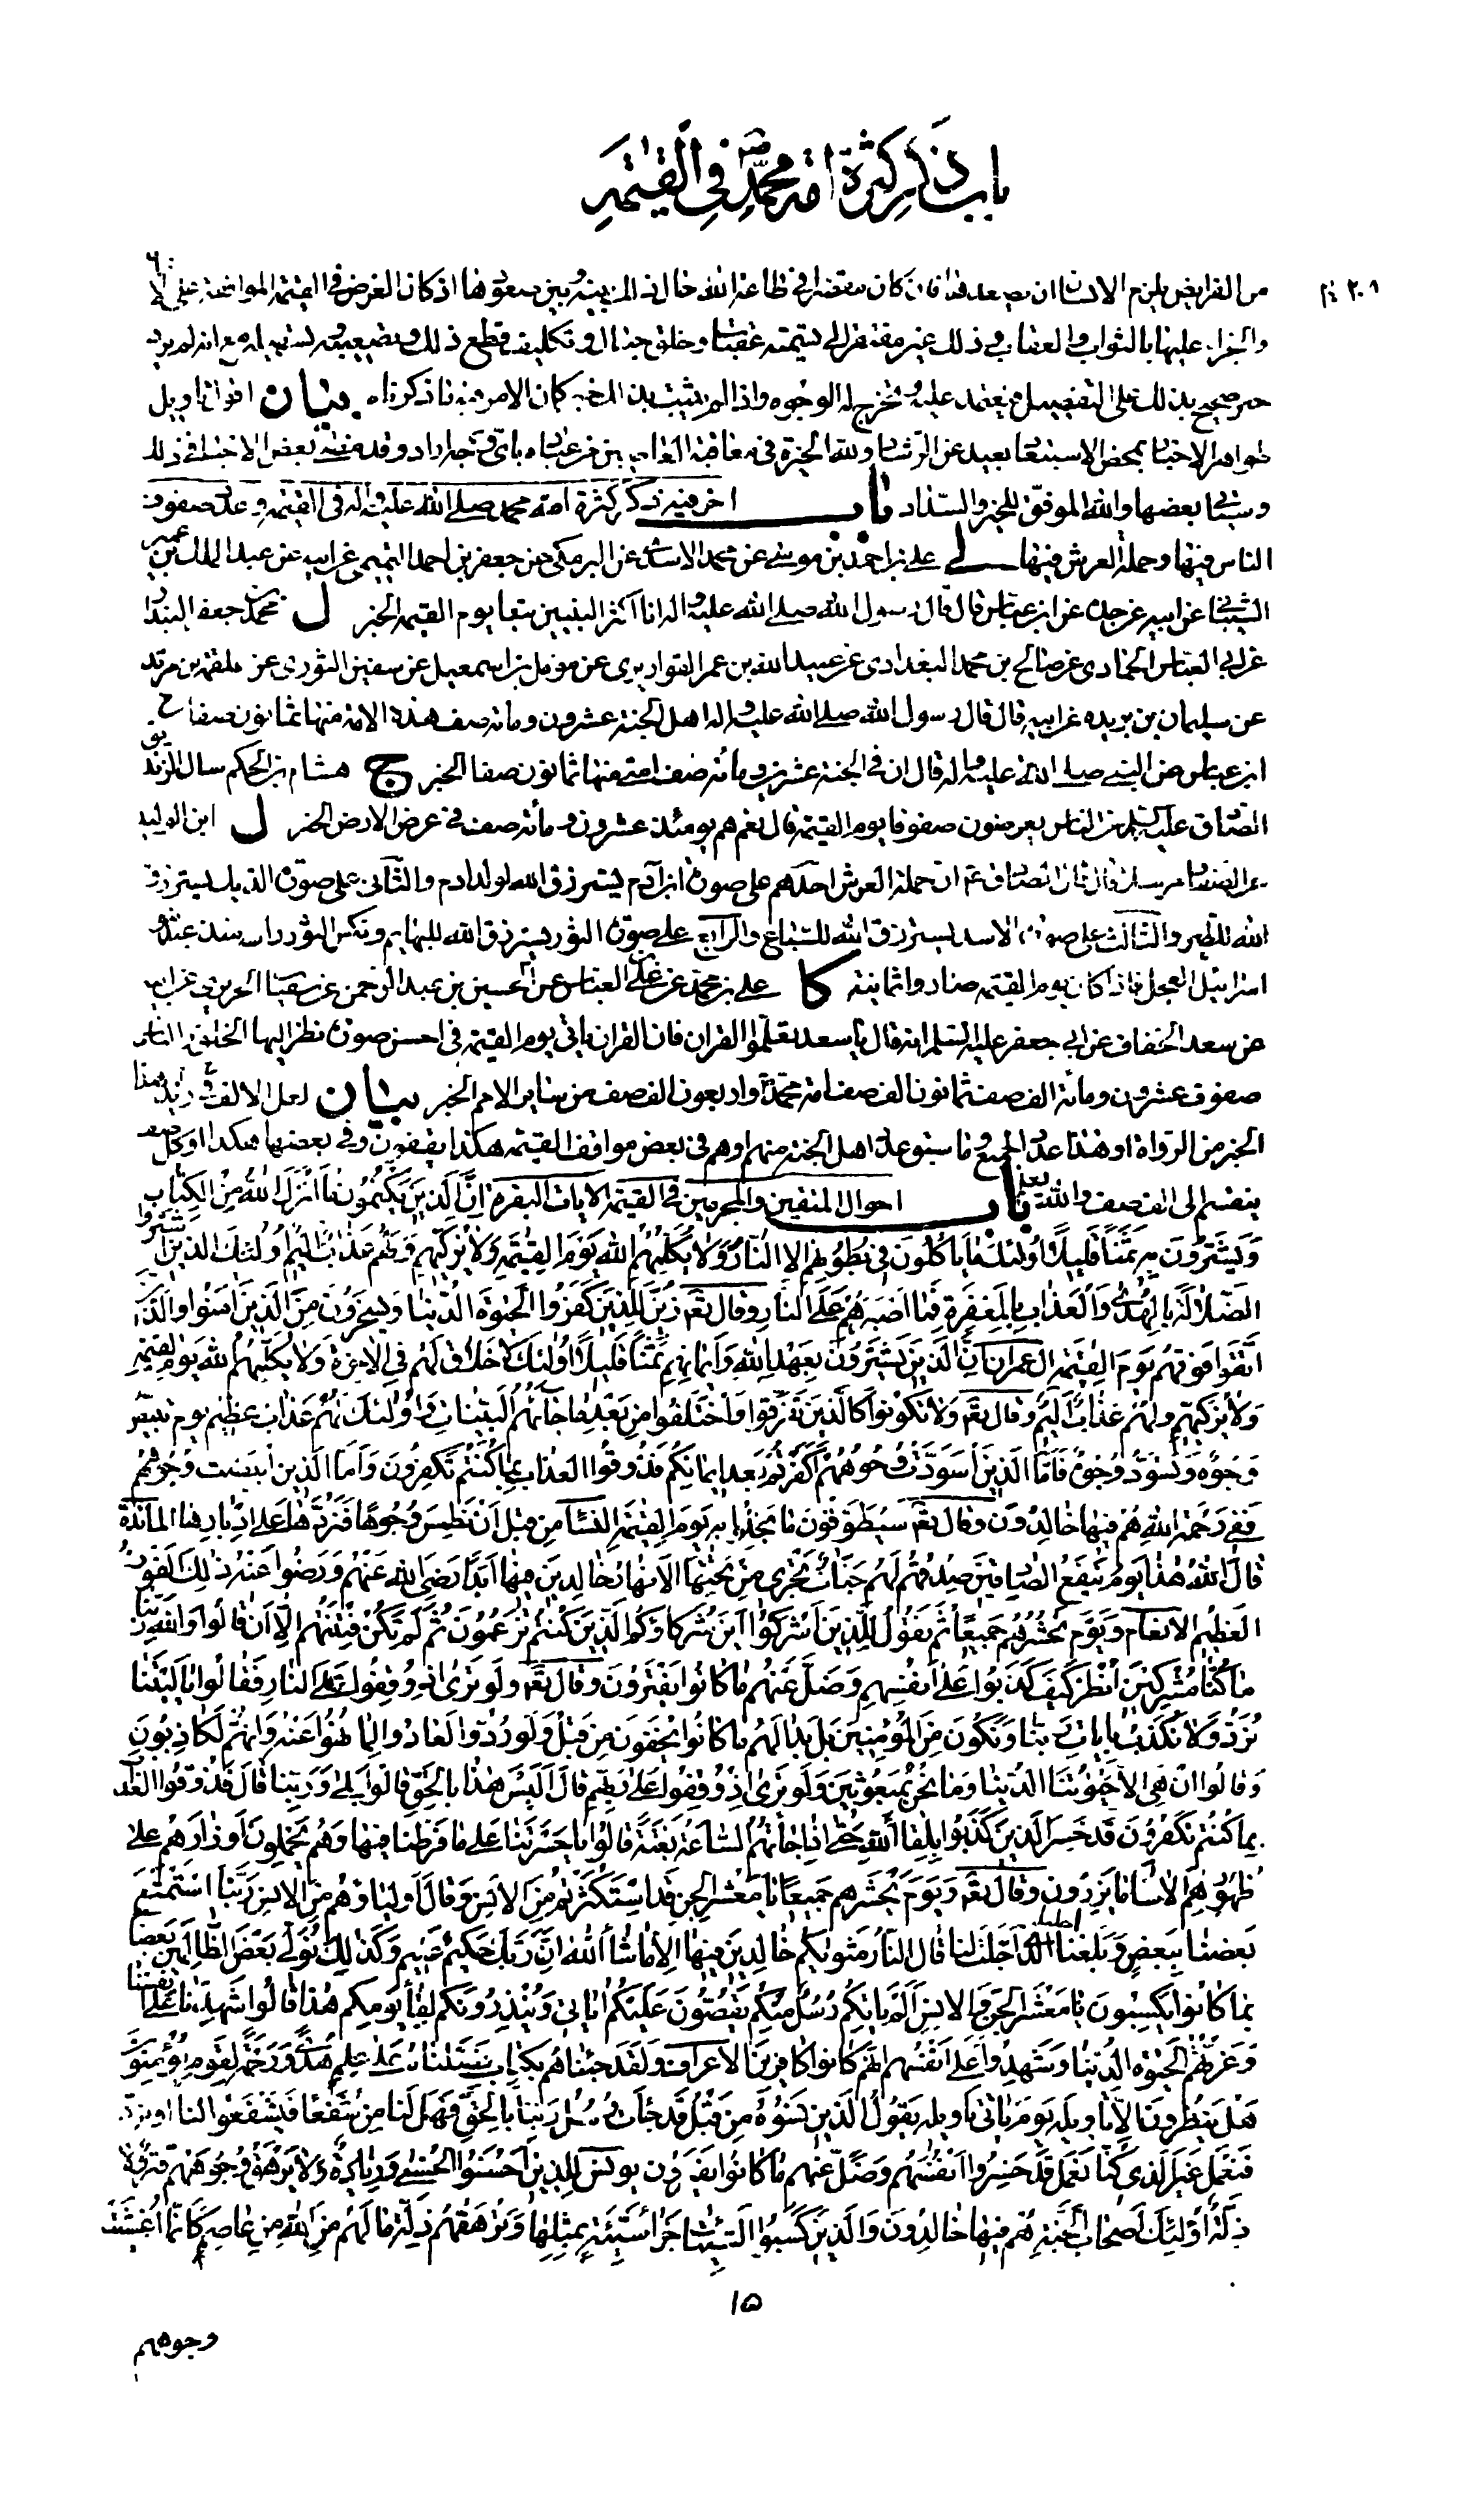 باب ذكر كثرة امة محمد ص في القيمة
من الفرايض يلزم الانسان ان يصعد فان كان مقصرا في طاعة الله حال ذلك بينه وبين صعودها اذ كان الغرض في القيمة المواقفة على
والجزاء عليها بالثواب والعقاب وذلك غير مفتقر الى تسمية عقبات وخلق جبال وتكليف قطع ذلك وتصعيبه او تسهيله مع انه لم يرد
خبر صحيح بذلك على التفصيل فيعتمد عليه وتخرج له الوجوه واذا لم يثبت بذلك خبر كان الامر فيه ما ذكرناه بيان اقول تاويل
ظواهر الاخبار بمحض الاستبعاد بعيد عن الرشاد ولله الخيرة في معاقبة العاصين من عباده باى وجه اراد وقد مضى بعض الاخبار في ذلك
وسياتي بعضها والله الموفق للخير والسداد باب اخر فيه ذكر كثرة امة محمد صلى الله عليه واله في القيمة وعدد صفوف
الناس فيها وحملة العرش فيها لى على بن احمد بن موسى عن محمد الاسدى عن البرمكى عن جعفر بن احمد التميمى عن ابيه عن عبد الملك بن عمير
الشيبانى عن ابيه عن جده عن ابن عباس قال قال رسول الله صلى الله عليه واله انا اكثر النبيين تبعا يوم القيمة الخبر ل محمد بن جعفر البندار
عن ابى العباس الحمادى عن صالح بن محمد البغدادى عن عبيد الله بن عمر القواريرى عن مومل بن اسمعيل عن سفين الثورى عن علقمة بن مرثد
عن سليمان بن بريده عن ابيه قال قال رسول الله صلى الله عليه واله اهل الجنة عشرون ومائة صف هذه الامة منها ثمانون صفا ح
ابن عباس عن النبى صلى الله عليه واله قال ان في الجنة عشرين ومائة صف امتى منها ثمانون صفا الخبر ج هشام بن الحكم سال الزنديق
الصادق عليه السلم عن الناس يعرضون صفوفا يوم القيمة قال نعم هم يومئذ عشرون ومائة صف في عرض الارض الخبر ل ابن الوليد
عن الصفار مرسلا قال قال الصادق ع ان حملة العرش احدهم على صورة ابن آدم يسترزق الله لولد ادم والثانى على صورة الديك يسترزق
الله للطير والثالث على صورة الاسد يسترزق الله للسباع والرابع على صورة الثور يسترزق الله للبهايم ونكس الثور راسه منذ عبد بنو
اسرائيل العجل فاذا كان يوم القيمة صاروا ثمانية كا على بن محمد عن على بن العباس عن الحسين بن عبد الرحمن عن سفيان الحريرى عن ابيه
عن سعد الخفاف عن ابى جعفر عليه السلم انه قال يا سعد تعلموا القران فان القران ياتى يوم القيمة في احسن صورة نظر اليها الخلق والناس
صفوف عشرون ومائة الف صف ثمانون الف صف امة محمد ص واربعون الف صف من ساير الامم الخبر بيان لعل الالف زيد في هذا
الخبر من الرواة او هذا عدد الجميع وما سبق عدد اهل الجنة منهم او هم في بعض مواقف القيمة هكذا يقفون وفي بعضها هكذا او كل صف
ينقسم الى الف صف والله يعلم باب احوال المتقين والمجرمين في القيمة الايات البقرة ان الذين يكتمون ما انزل الله من الكتاب
ويشترون به ثمنا قليلا اولئك ما ياكلون في بطونهم الا النار ولا يكلمهم الله يوم القيمة ولا يزكيهم ولهم عذاب اليم اولئك الذين اشتروا
الضلالة بالهدى والعذاب بالمغفرة فما اصبرهم على النار وقال تع زين للذين كفروا الحيوة الدنيا ويسخرون من الذين امنوا والذين
اتقوا فوقهم يوم القيمة ال عمران ان الذين يشترون بعهد الله وايمانهم ثمنا قليلا اولئك لا خلاق لهم في الاخرة ولا يكلمهم الله يوم القيمة
ولا يزكيهم ولهم عذاب اليم وقال تع ولا تكونوا كالذين تفرقوا واختلفوا من بعد ما جائهم البينات واولئك لهم عذاب عظيم يوم تبيض
وجوه وتسود وجوه فاما الذين اسودت وجوههم اكفرتم بعد ايمانكم فذوقوا العذاب بما كنتم تكفرون واما الذين ابيضت وجوههم
ففى رحمة الله هم فيها خالدون وقال تع سيطوقون ما بخلوا به يوم القيمة النسا من قبل ان نطمس وجوها فنردها على ادبارها المائدة
قال الله هذا يوم ينفع الصادقين صدقهم لهم جنات تجرى من تحتها الانهار خالدين فيها ابدا رضى الله عنهم ورضوا عنه ذلك الفوز
العظيم الانعام ويوم نحشرهم جميعا ثم نقول للذين اشركوا اين شركاوكم الذين كنتم تزعمون ثم لم تكن فتنتهم الا ان قالوا والله ربنا
ما كنا مشركين انظر كيف كذبوا على انفسهم وضل عنهم ما كانوا يفترون وقال تع ولو ترى اذ وقفوا على النار فقالوا يا ليتنا
نرد ولا نكذب بايات ربنا ونكون من المؤمنين بل بدا لهم ما كانوا يخفون من قبل ولو ردوا لعادوا لما نهوا عنه وانهم لكاذبون
وقالوا ان هى الا حيوتنا الدنيا وما نحن بمبعوثين ولو ترى اذ وقفوا على ربهم قال اليس هذا بالحق قالوا بلى وربنا قال فذوقوا العذاب
بما كنتم تكفرون قد خسر الذين كذبوا بلقاء الله حتى اذا جائتهم الساعة بغتة قالوا يا حسرتنا على ما فرطنا فيها وهم يحملون اوزارهم على
ظهورهم الا ساء ما يزرون وقال تع ويوم يحشرهم جميعا يا معشر الجن قد استكثرتم من الانس وقال اولياؤهم من الانس ربنا استمتع
بعضنا ببعض وبلغنا اجلنا الذى اجلت لنا قال النار مثويكم خالدين فيها الا ما شاء الله ان ربك حكيم عليم وكذلك نولى بعض الظالمين بعضا
بما كانوا يكسبون يا معشر الجن والانس الم ياتكم رسل منكم يقصون عليكم اياتى وينذرونكم لقاء يومكم هذا قالوا شهدنا على انفسنا
وغرتهم الحيوة الدنيا وشهدوا على انفسهم انهم كانوا كافرين الاعراف ولقد جئناهم بكتاب فصلناه على علم هدى ورحمة لقوم يؤمنون
هل ينظرون الا تاويله يوم ياتى تاويله يقول الذين نسوه من قبل قد جاءت رسل ربنا بالحق فهل لنا من شفعاء فيشفعوا لنا او نرد
فنعمل غير الذى كنا نعمل قد خسروا انفسهم وضل عنهم ما كانوا يفترون يونس للذين احسنوا الحسنى وزيادة ولا يرهق وجوههم قتر ولا
ذلة اولئك اصحاب الجنة هم فيها خالدون والذين كسبوا السيئات جزاء سيئة بمثلها وترهقهم ذلة ما لهم من الله من عاصم كانما اغشيت
١٥
وجوههم